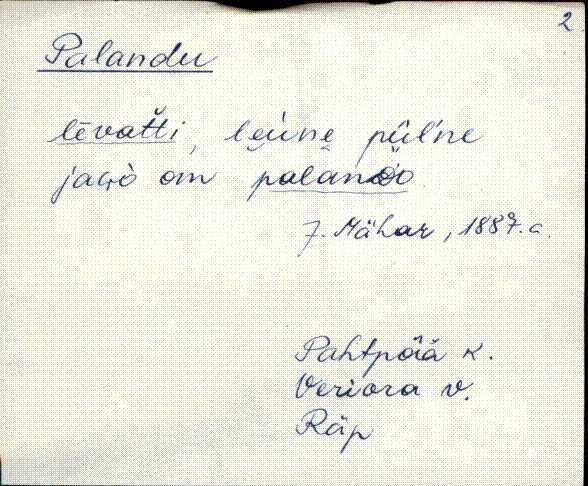 2.
Palandu
lēvat̆ti, leùne pūl'ne
jago om palandõ
J. Mähar, 1887. a.
Pahtpää k.
Veriora v.
Räp